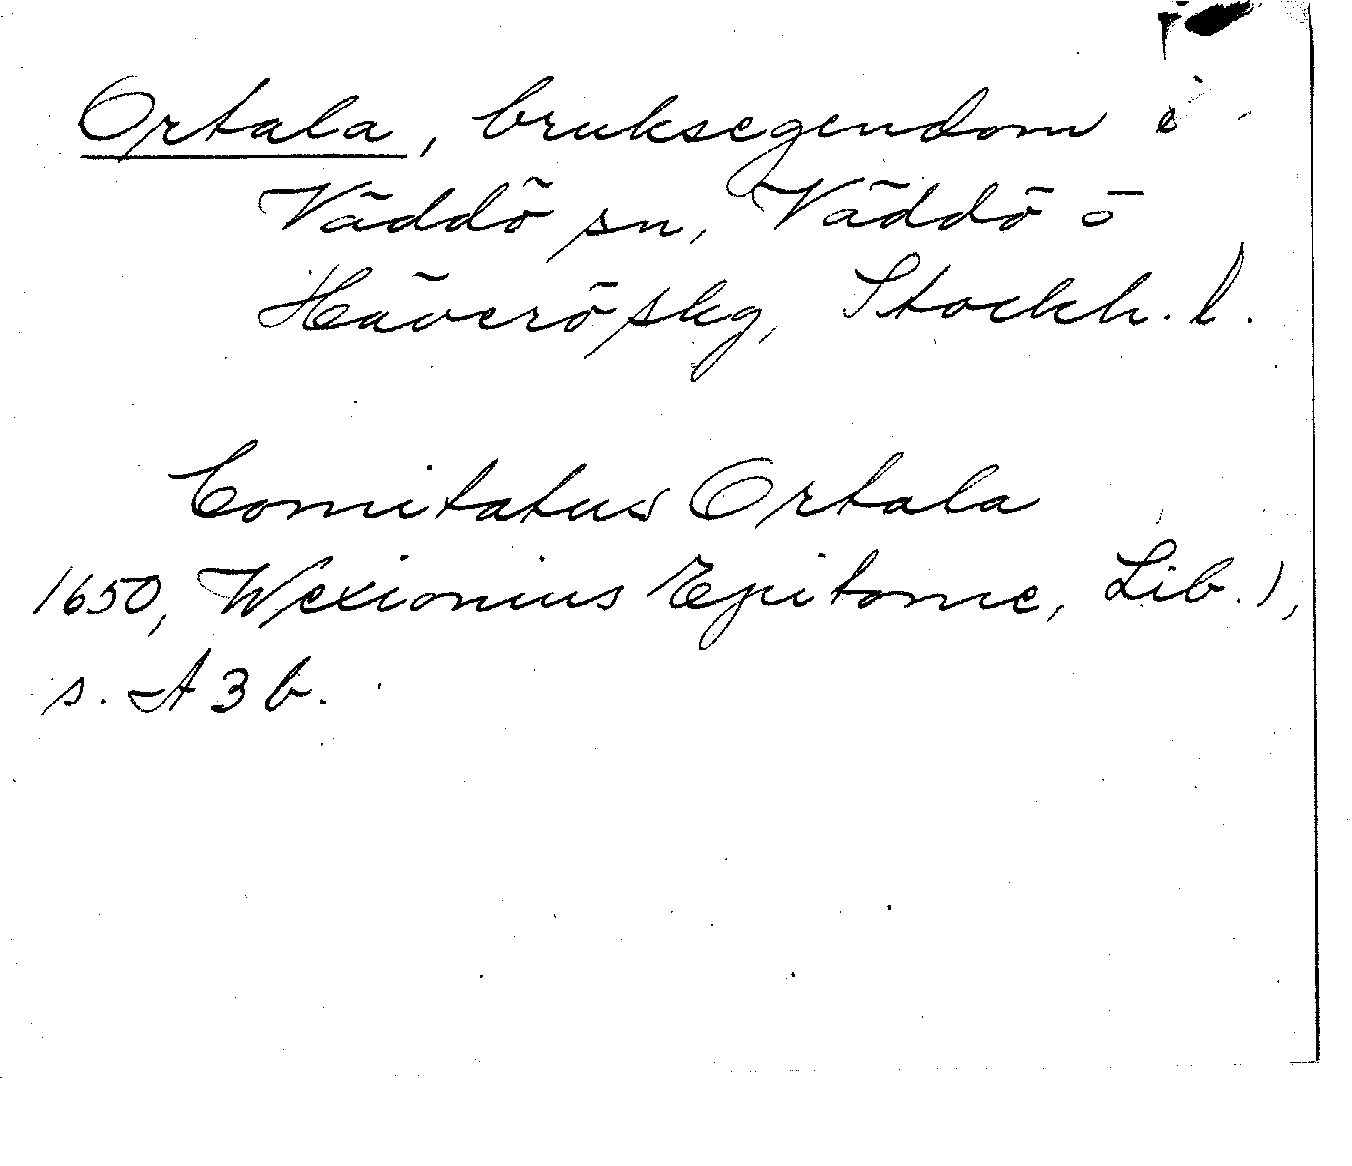 Ortala, bruksegendom i
Väddö sn, Väddö o
Häverö skg, Stockh. l.
Comitatus Ortala
1650, Wexionius Epitome, Lib. 1,
s. A 3 b.